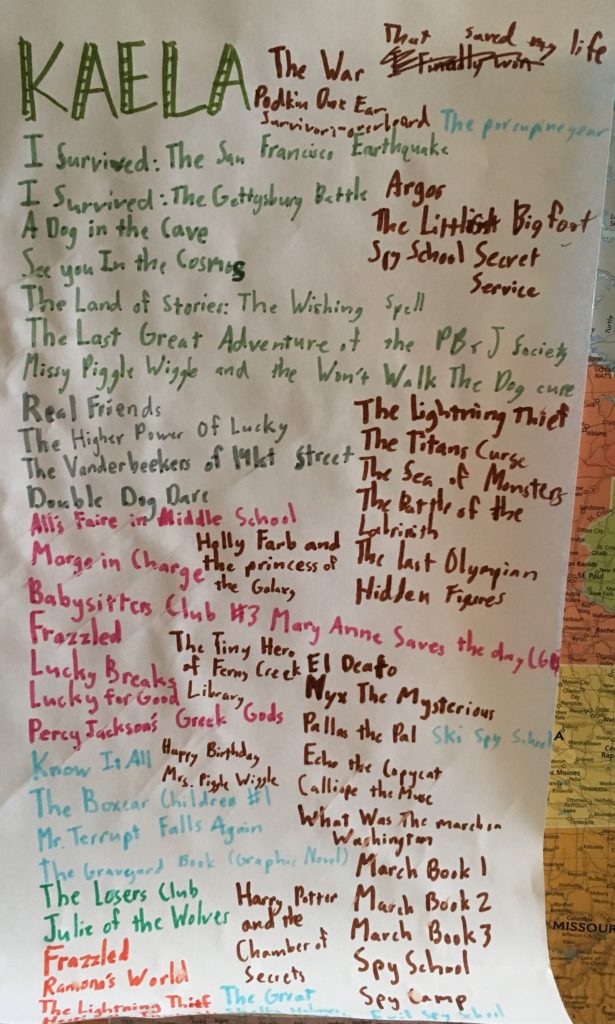 KAELA
The War
That saved my life
Finally Won
Podkin One Ear
Survivors-overboard
The porcupine year
I Survived: The San Francisco Earthquake
I Survived: The Gettysburg Battle
Argos
A Dog in the Cave
The Littlist Bigfoot
See you In the Cosmos
Spy School Secret
Service
The Land of Stories: The Wishing Spell
The Last Great Adventure of the PB & J Society
Missy Piggle Wiggle and the Won't Walk The Dog cure
Real Friends
The Higher Power Of Lucky
The Vanderbeekers of 141st Street
Double Dog Dare
The Lightning Thief
The Titans Curse
The Sea of Monsters
The Battle of the
Labrinith
The Last Olympian
Hidden Figures
All's Faire in Middle School
Marge in Charge
Holly Farb and
the princess of
the Galaxy
Babysitters Club #3 Mary Anne Saves the day (GN
Frazzled
Lucky Breaks
Lucky for Good
The Tiny Hero
of Ferny Creek
Library
El Deafo
Nyx The Mysterious
Percy Jackson's Greek Gods
Pallas the Pal
Ski Spy School
Know It All
Happy Birthday
Mrs. Piggle Wiggle
Echo the Copycat
Calliope the Muse
The Boxcar Children #1
Mr. Terrupt Falls Again
What Was The march on
Washington
The Graveyard Book (Graphic Novel)
March Book 1
March Book 2
March Book 3
The Losers Club
Julie of the Wolves
Harry Potter
and the
Chamber of
Secrets
Frazzled
Ramona's World
Spy School
Spy Camp
The Lightning Thief
The Great
Evil Spy School
St. Paul
Moines
MISSOUR